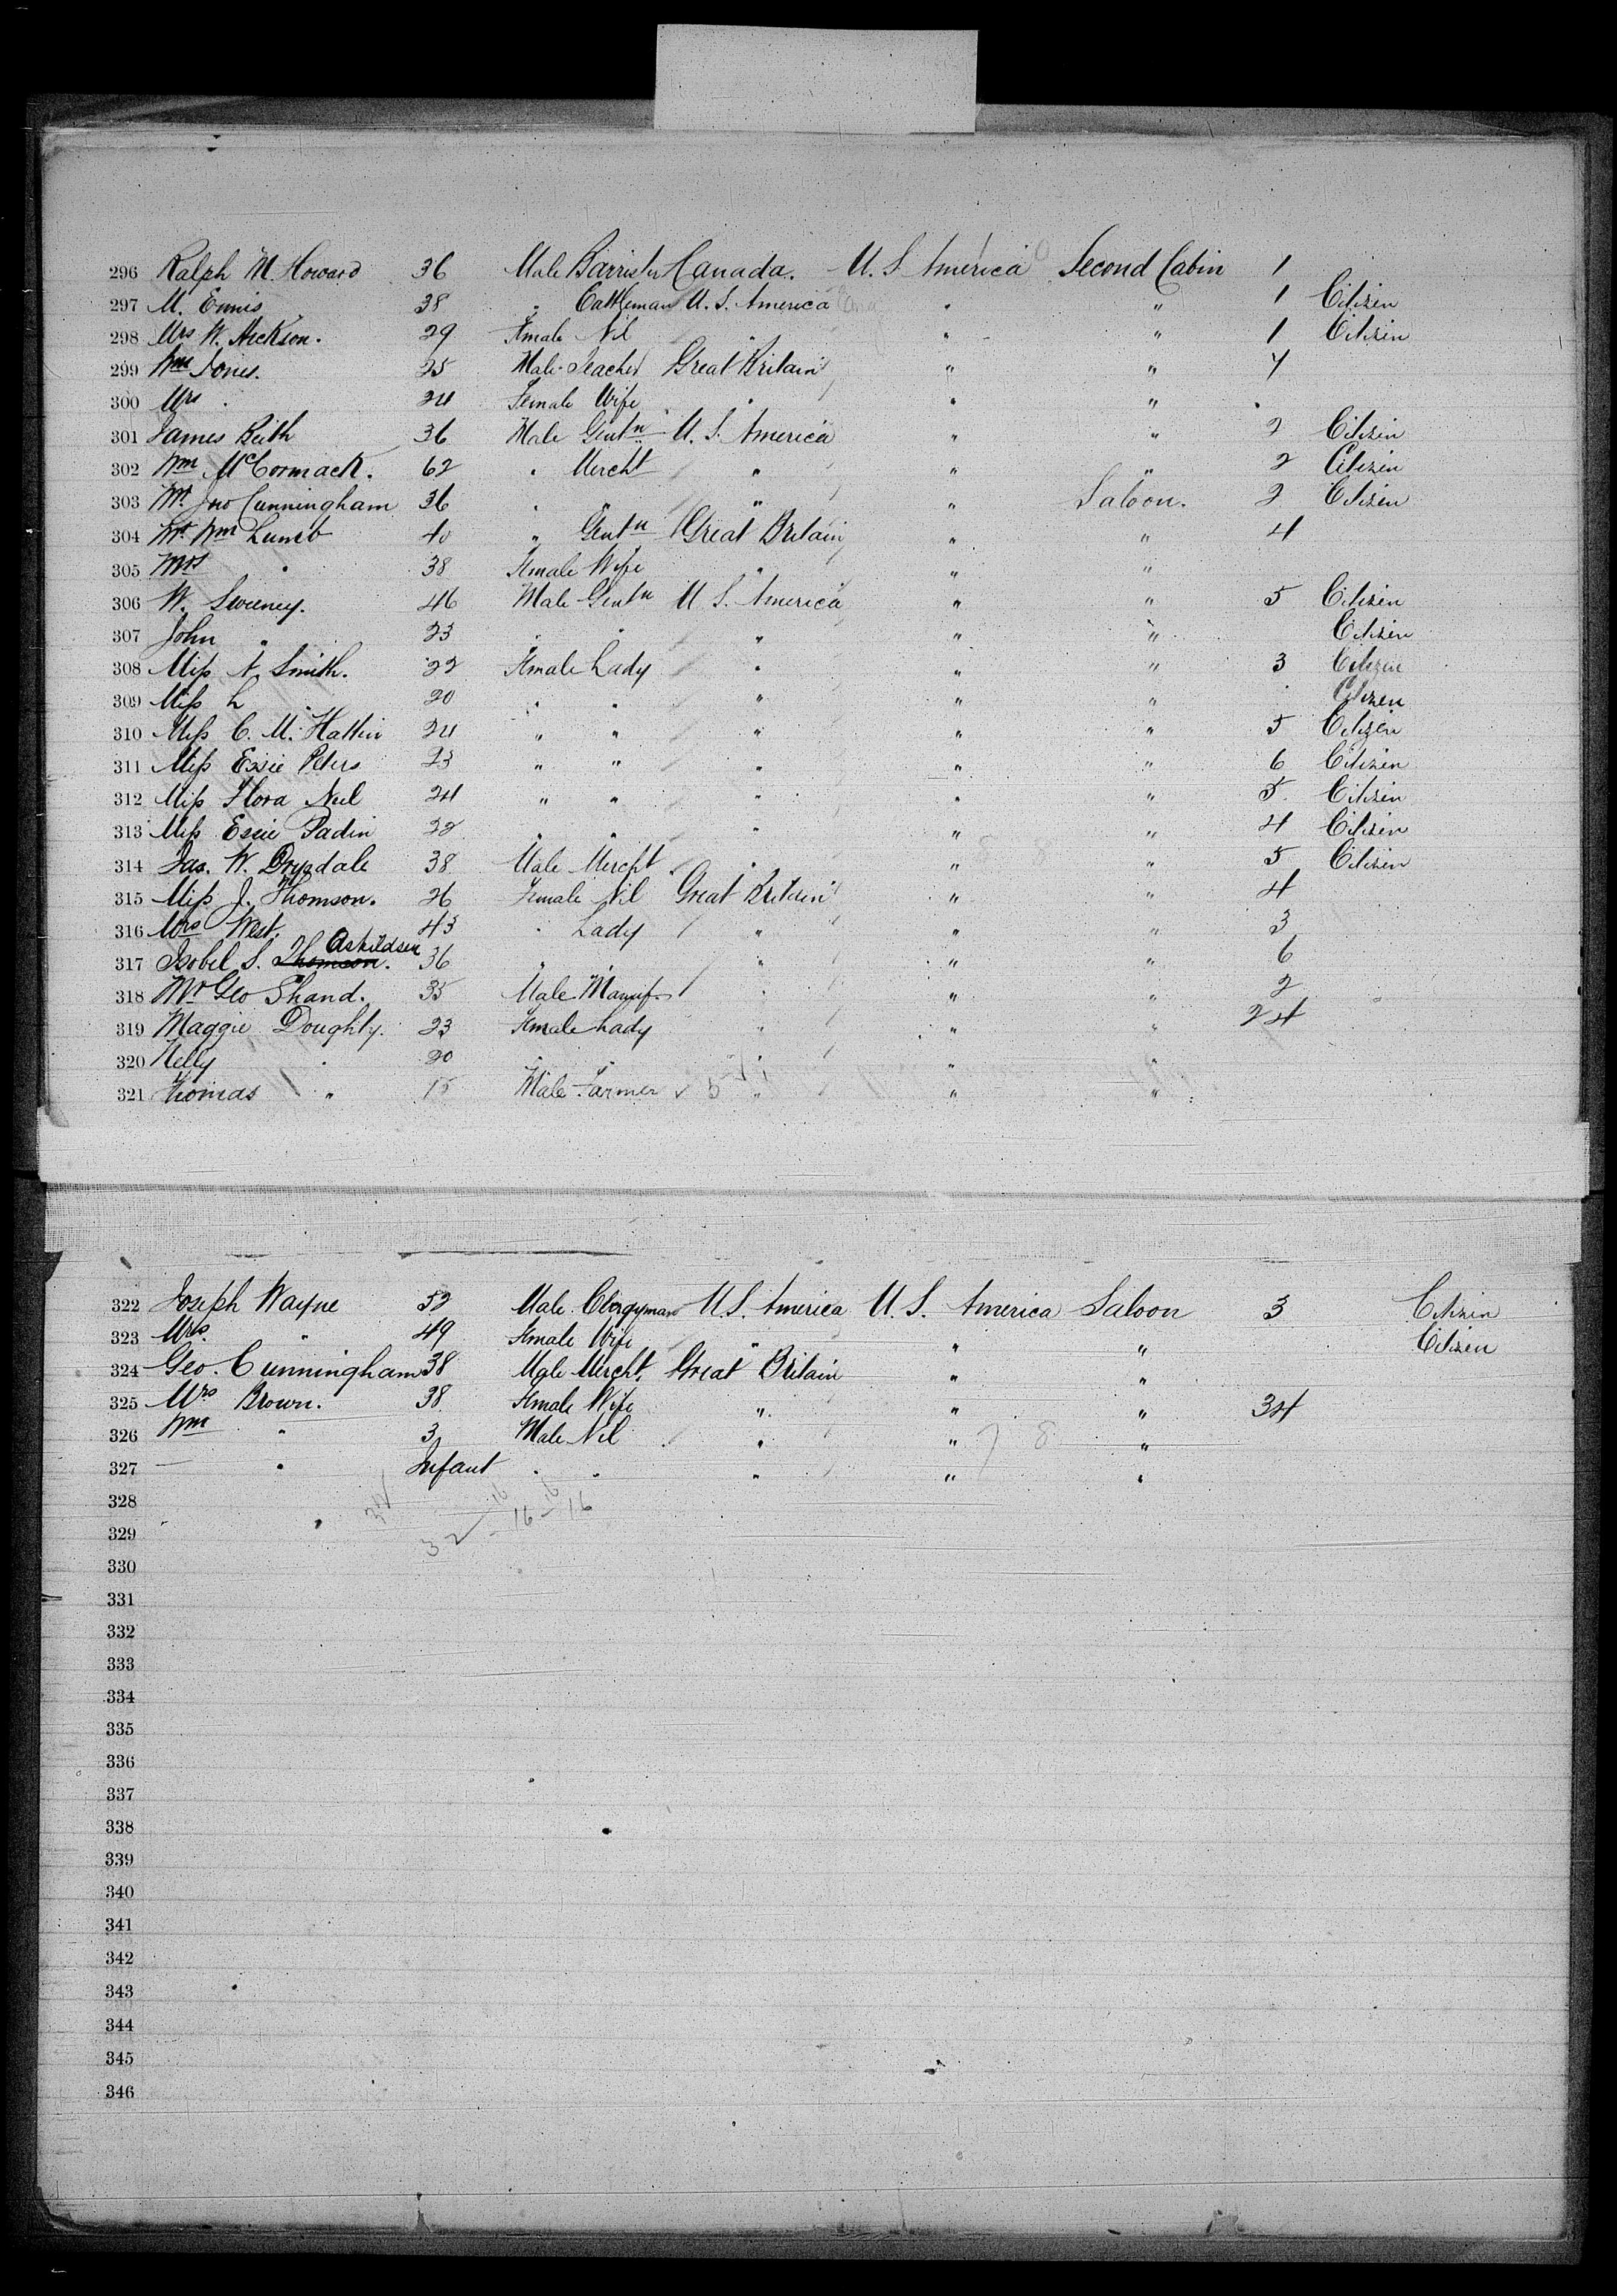 296 Ralph M. Howard 36 Male Barrister Canada. U. S America Second Cabin 1
297 M. Ennis 38 " Cattleman U. S. America " " 1 Citizen
298 Mrs W. Hickson. 29 Female Nil " " " 1 Citizen
299 Wm Jones. 25 Male Teacher Great Britain " " 7
300 Mrs " 24 Female Wife " " " "
301 James Beith 36 Male Gentn U. S. America " " 2 Citizen
302 Wm McCormack. 62 " Mercht " " " 2 Citizen
303 Mr Jno Cunningham 36 " " " " Saloon. 2 Citizen
304 Mr Wm Lumb 40 " Gentn Great Britain " " 4
305 Mrs " 38 Female Wife " " "
306 W. Sweeney. 46 Male Gentn U S. America " " 5 Citizen
307 John " 23 " " " " " Citizen
308 Miss A. Smith. 22 Female Lady " " " 3 Citizen
309 Miss L " 20 " " " " " " Citizen
310 Miss C. M. Hattin 24 " " " " " 5 Citizen
311 Miss Essie Peters 23 " " " " " 6 Citizen
312 Miss Flora Neil 24 " " " " " 5. Citizen
313 Miss Essie Padin 22 " " " " " 4 Citizen
314 Jas. W. Drysdale 38 Male Mercht " " " 5 Citizen
315 Miss J. Thomson. 26 Female Nil Great Britain " " 4
316 Mrs West. 43 " Lady " " " 3
317 Isobel S. Thomson. Askildsen 36 " " " " " 6
318 Mr Geo Shand. 35 Male Manufr " " " 2
319 Maggie Doughty. 23 Female Lady " " " 24
320 Nelly " 20 " " " " "
321 Thomas " 15 Male Farmer " " "
322 Joseph Wayne 52 Male Clergyman U.S. America U. S. America Saloon 3 Citizen
323 Mrs. " 49 Female Wife " " " Citizen
324 Geo. Cunningham 38 Male Mercht. Great Britain " "
325 Mrs Brown. 38 Female Wife " " " 34
326 Wm " 3 Male Nil " " "
327 — " Infant " " " " "
328
329
32 - 16 - 16
330
331
332
333
334
335
336
337
338
339
340
341
342
343
344
345
346